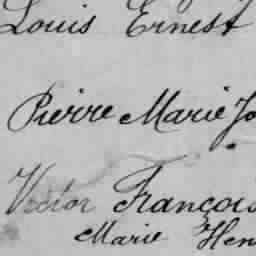 Louis Ernest
Pierre Marie Jo
Victor François
Marie Hen